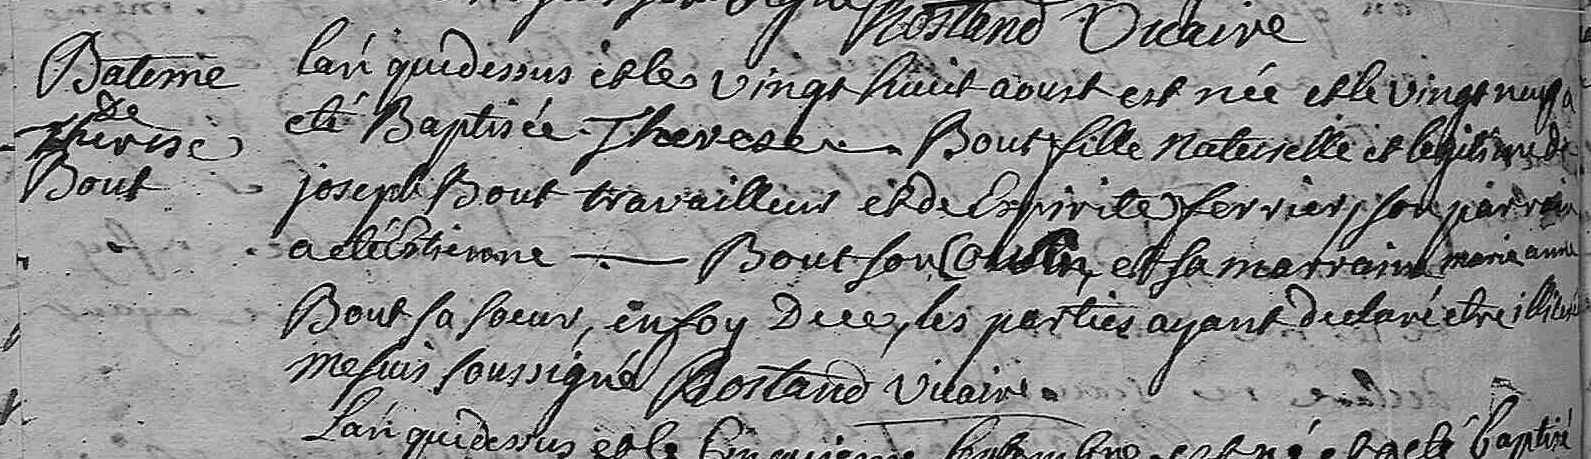 Rostand Vicaire
Bateme
de
Therese
Bout
L'an quedessus et le vingt huit aoust est née et le vingt neuf a
eté Baptisée Therese Bout fille naturelle et legitime de
joseph Bout travailleur et de Espirite ferrier, son parrain
a eté Estienne Bout son Cousin, et sa marraine marie anne
Bout sa soeur, en foy de ce, les parties ayant declaré etre illiterées
me suis soussigné Rostand vicaire
L'an quedessus et le cinquieme septembre est né et a eté baptisé